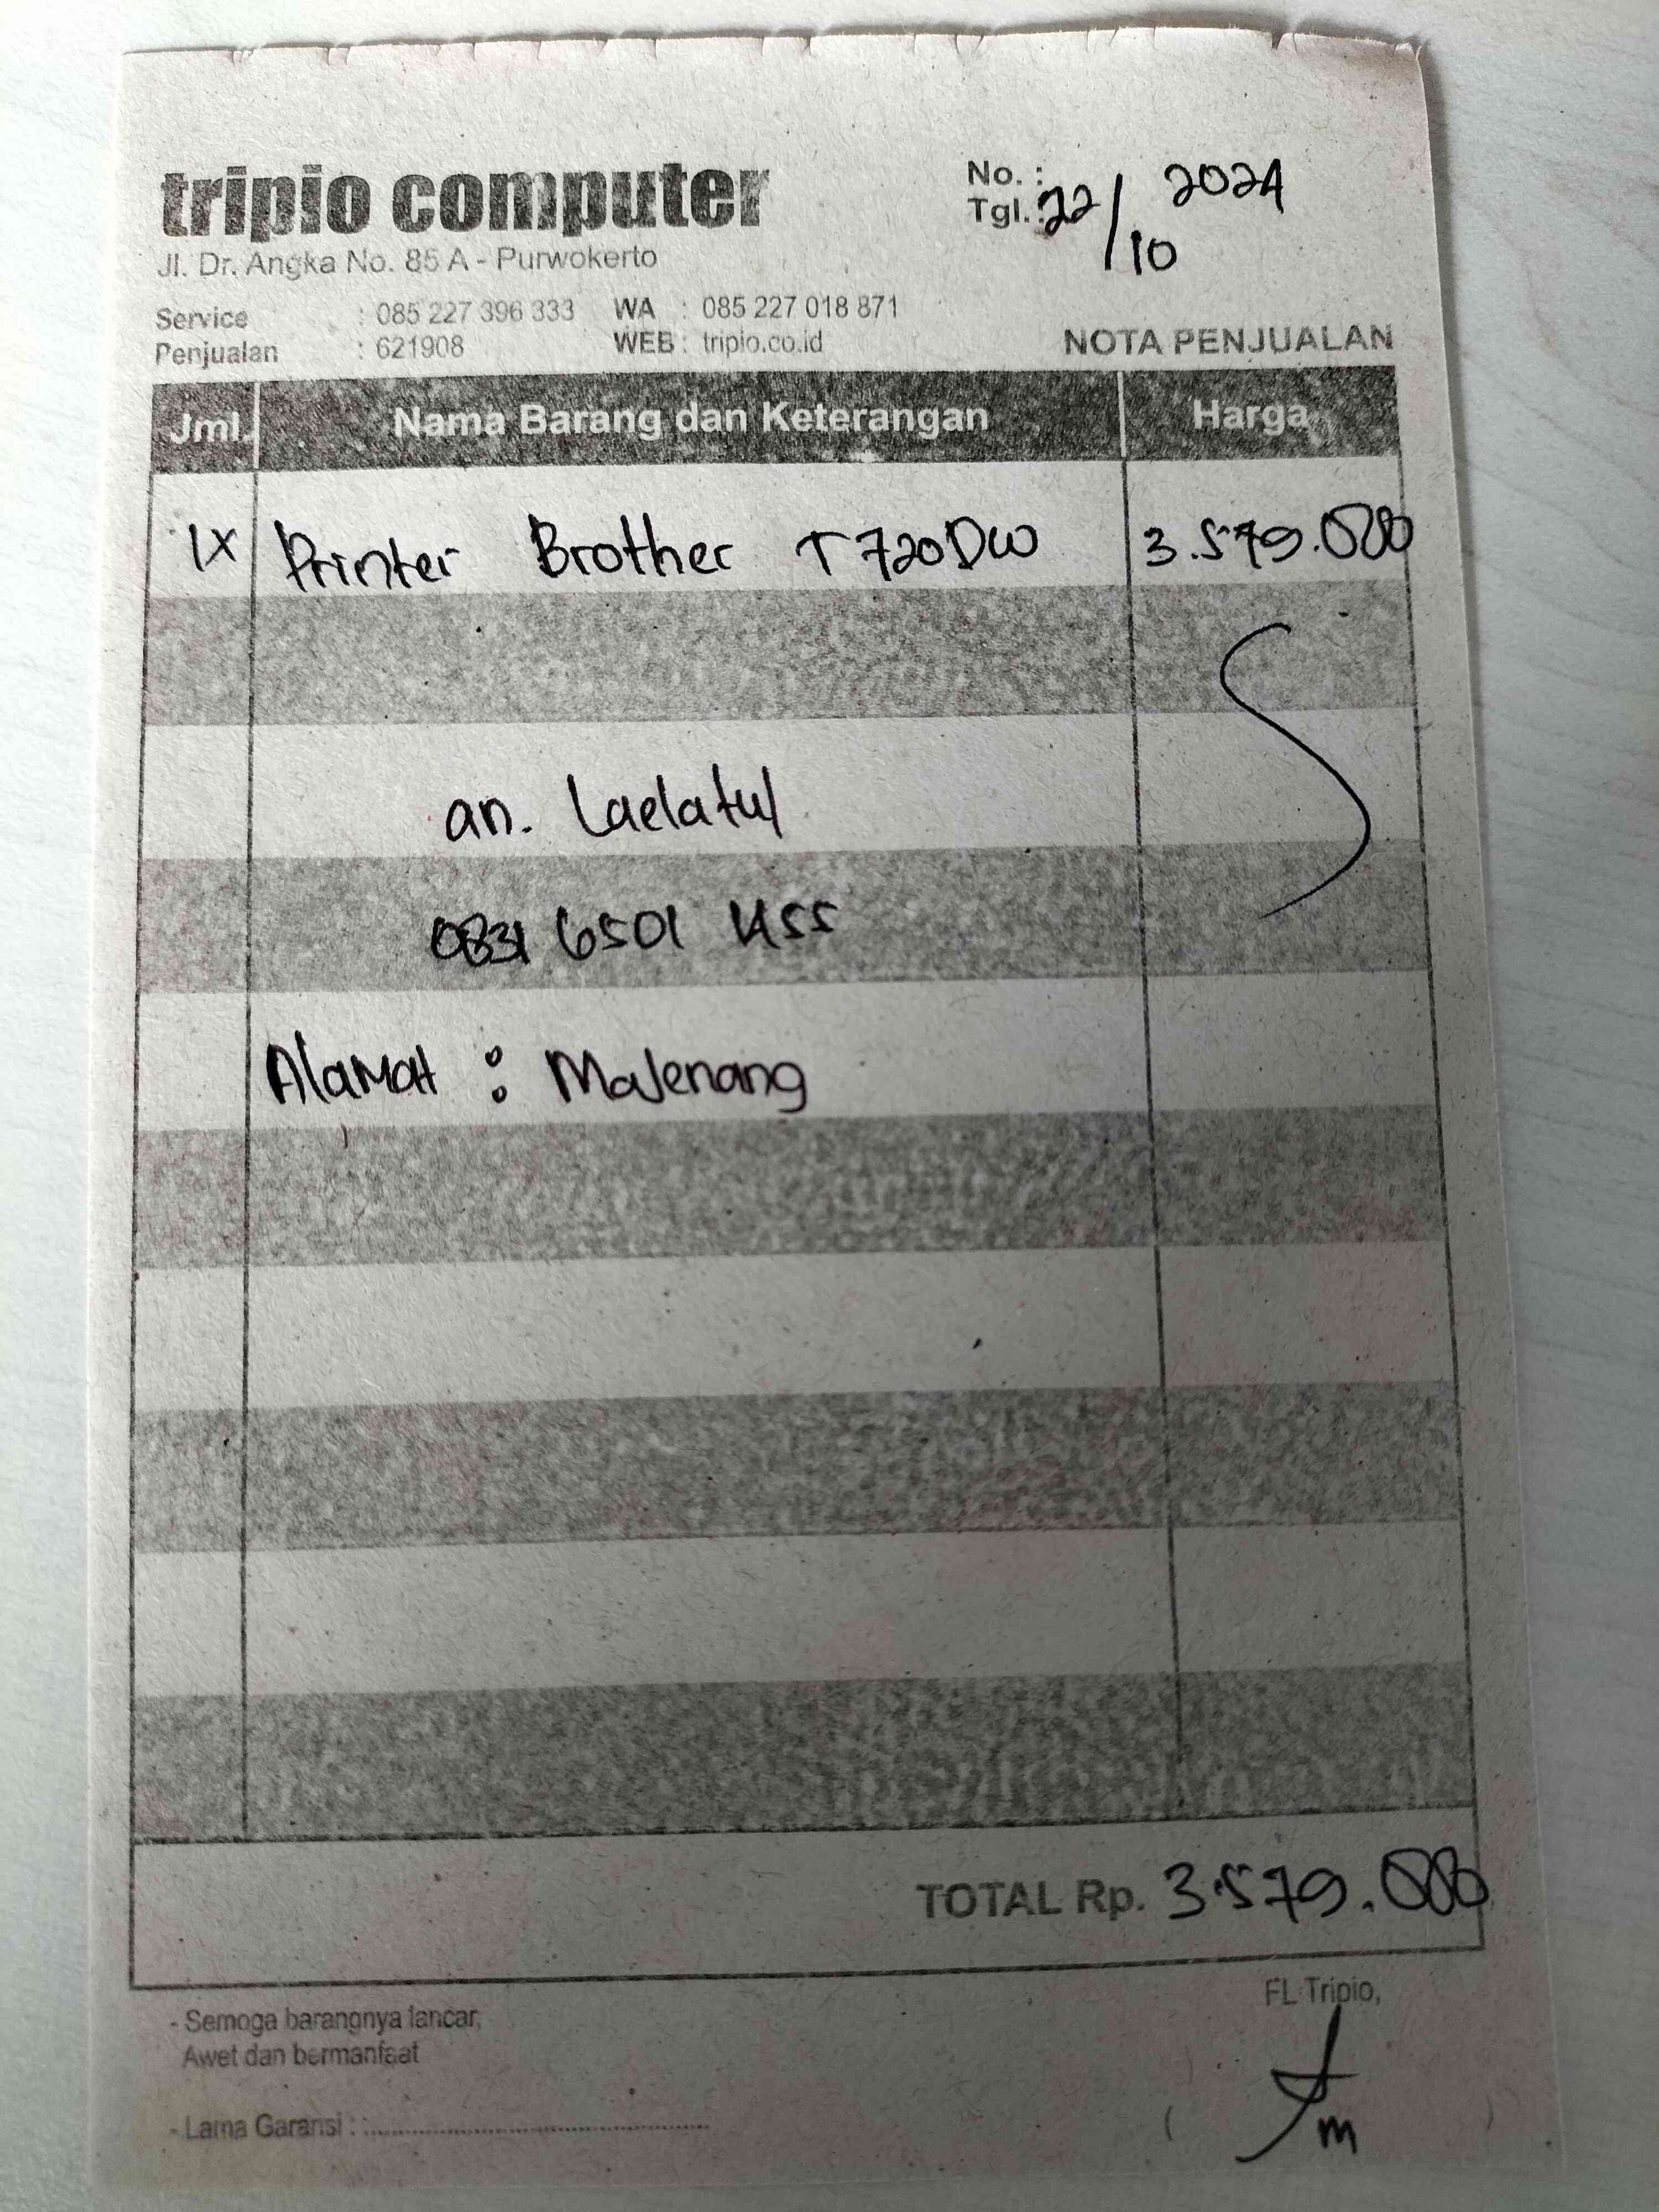 tripio computer
Jl. Dr. Angka No. 85 A - Purwokerto
No. :
Tgl. : 22/10 2024
Service : 085 227 396 333 WA : 085 227 018 871
Penjualan : 621908 WEB : tripio.co.id
NOTA PENJUALAN
Jml. Nama Barang dan Keterangan Harga
1x Printer Brother T720DW 3.579.000
an. Laelatul
0831 6501 4455
Alamat : Majenang
TOTAL Rp. 3.579.000
- Semoga barangnya lancar,
Awet dan bermanfaat
- Lama Garansi : ..........
FL Tripio,